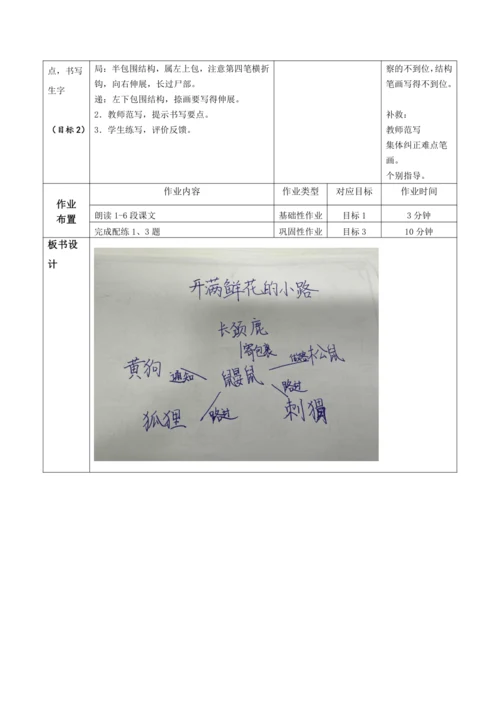 点，书写
生字
（目标2）
局：半包围结构，属左上包，注意第四笔横折
钩，向右伸展，长过尸部。
递：左下包围结构，捺画要写得伸展。
2．教师范写，提示书写要点。
3．学生练写，评价反馈。
察的不到位，结构
笔画写得不到位。
补救：
教师范写
集体纠正难点笔
画。
个别指导。
作业
布置
作业内容 作业类型 对应目标 作业时间
朗读 1-6 段课文 基础性作业 目标 1 3 分钟
完成配练 1、3 题 巩固性作业 目标 3 10 分钟
板书设
计
开满鲜花的小路
长颈鹿
寄包裹
黄狗 通知 鼹鼠 松鼠
路过 路过
狐狸 刺猬